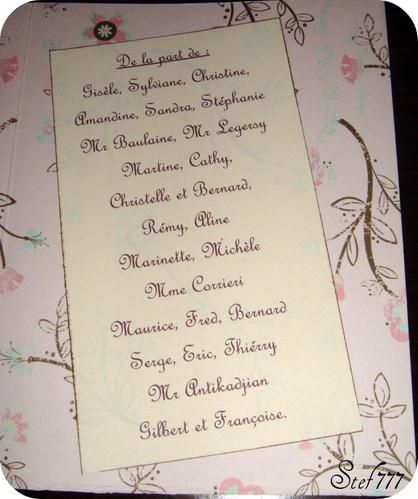 De la part de :
Gisèle, Sylviane, Christine,
Amandine, Sandra, Stéphanie
Mr Baulaine, Mr Legersy
Martine, Cathy,
Christelle et Bernard,
Rémy, Aline
Marinette, Michèle
Mme Corrieri
Maurice, Fred, Bernard
Serge, Eric, Thiérry
Mr Antikadjian
Gilbert et Françoise.
Stef777